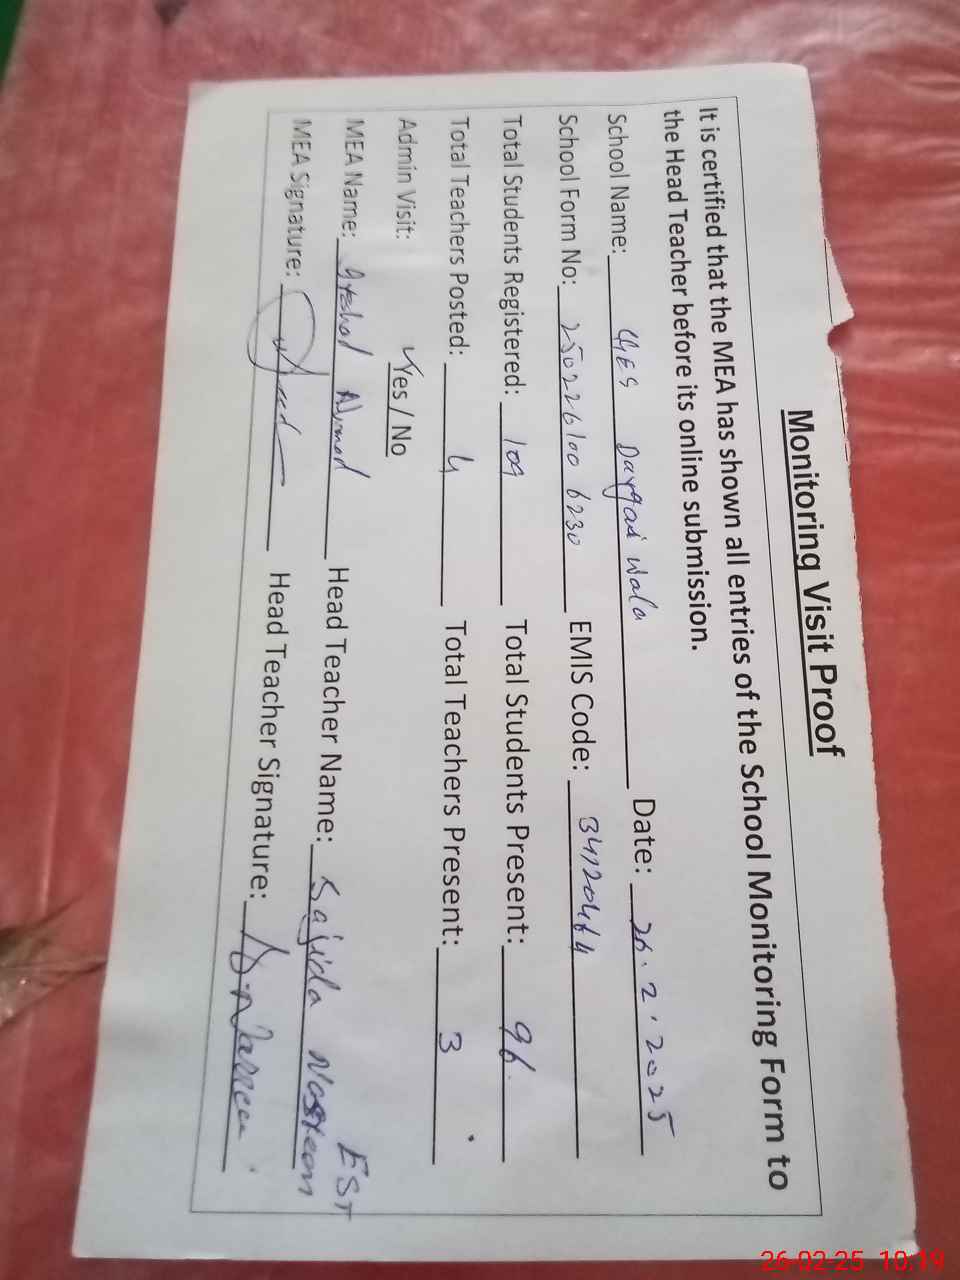 Monitoring Visit Proof
It is certified that the MEA has shown all entries of the School Monitoring Form to
the Head Teacher before its online submission.
School Name: GES Dargai Wala Date: 26.2.2025
School Form No: 2502261006230 EMIS Code: 34120464
Total Students Registered: 109 Total Students Present: 96
Total Teachers Posted: 4 Total Teachers Present: 3
Admin Visit: Yes / No
EST
MEA Name: Arshad Ahmad Head Teacher Name: Sajida Nasreen
MEA Signature: Head Teacher Signature:
26-02-25 10:19